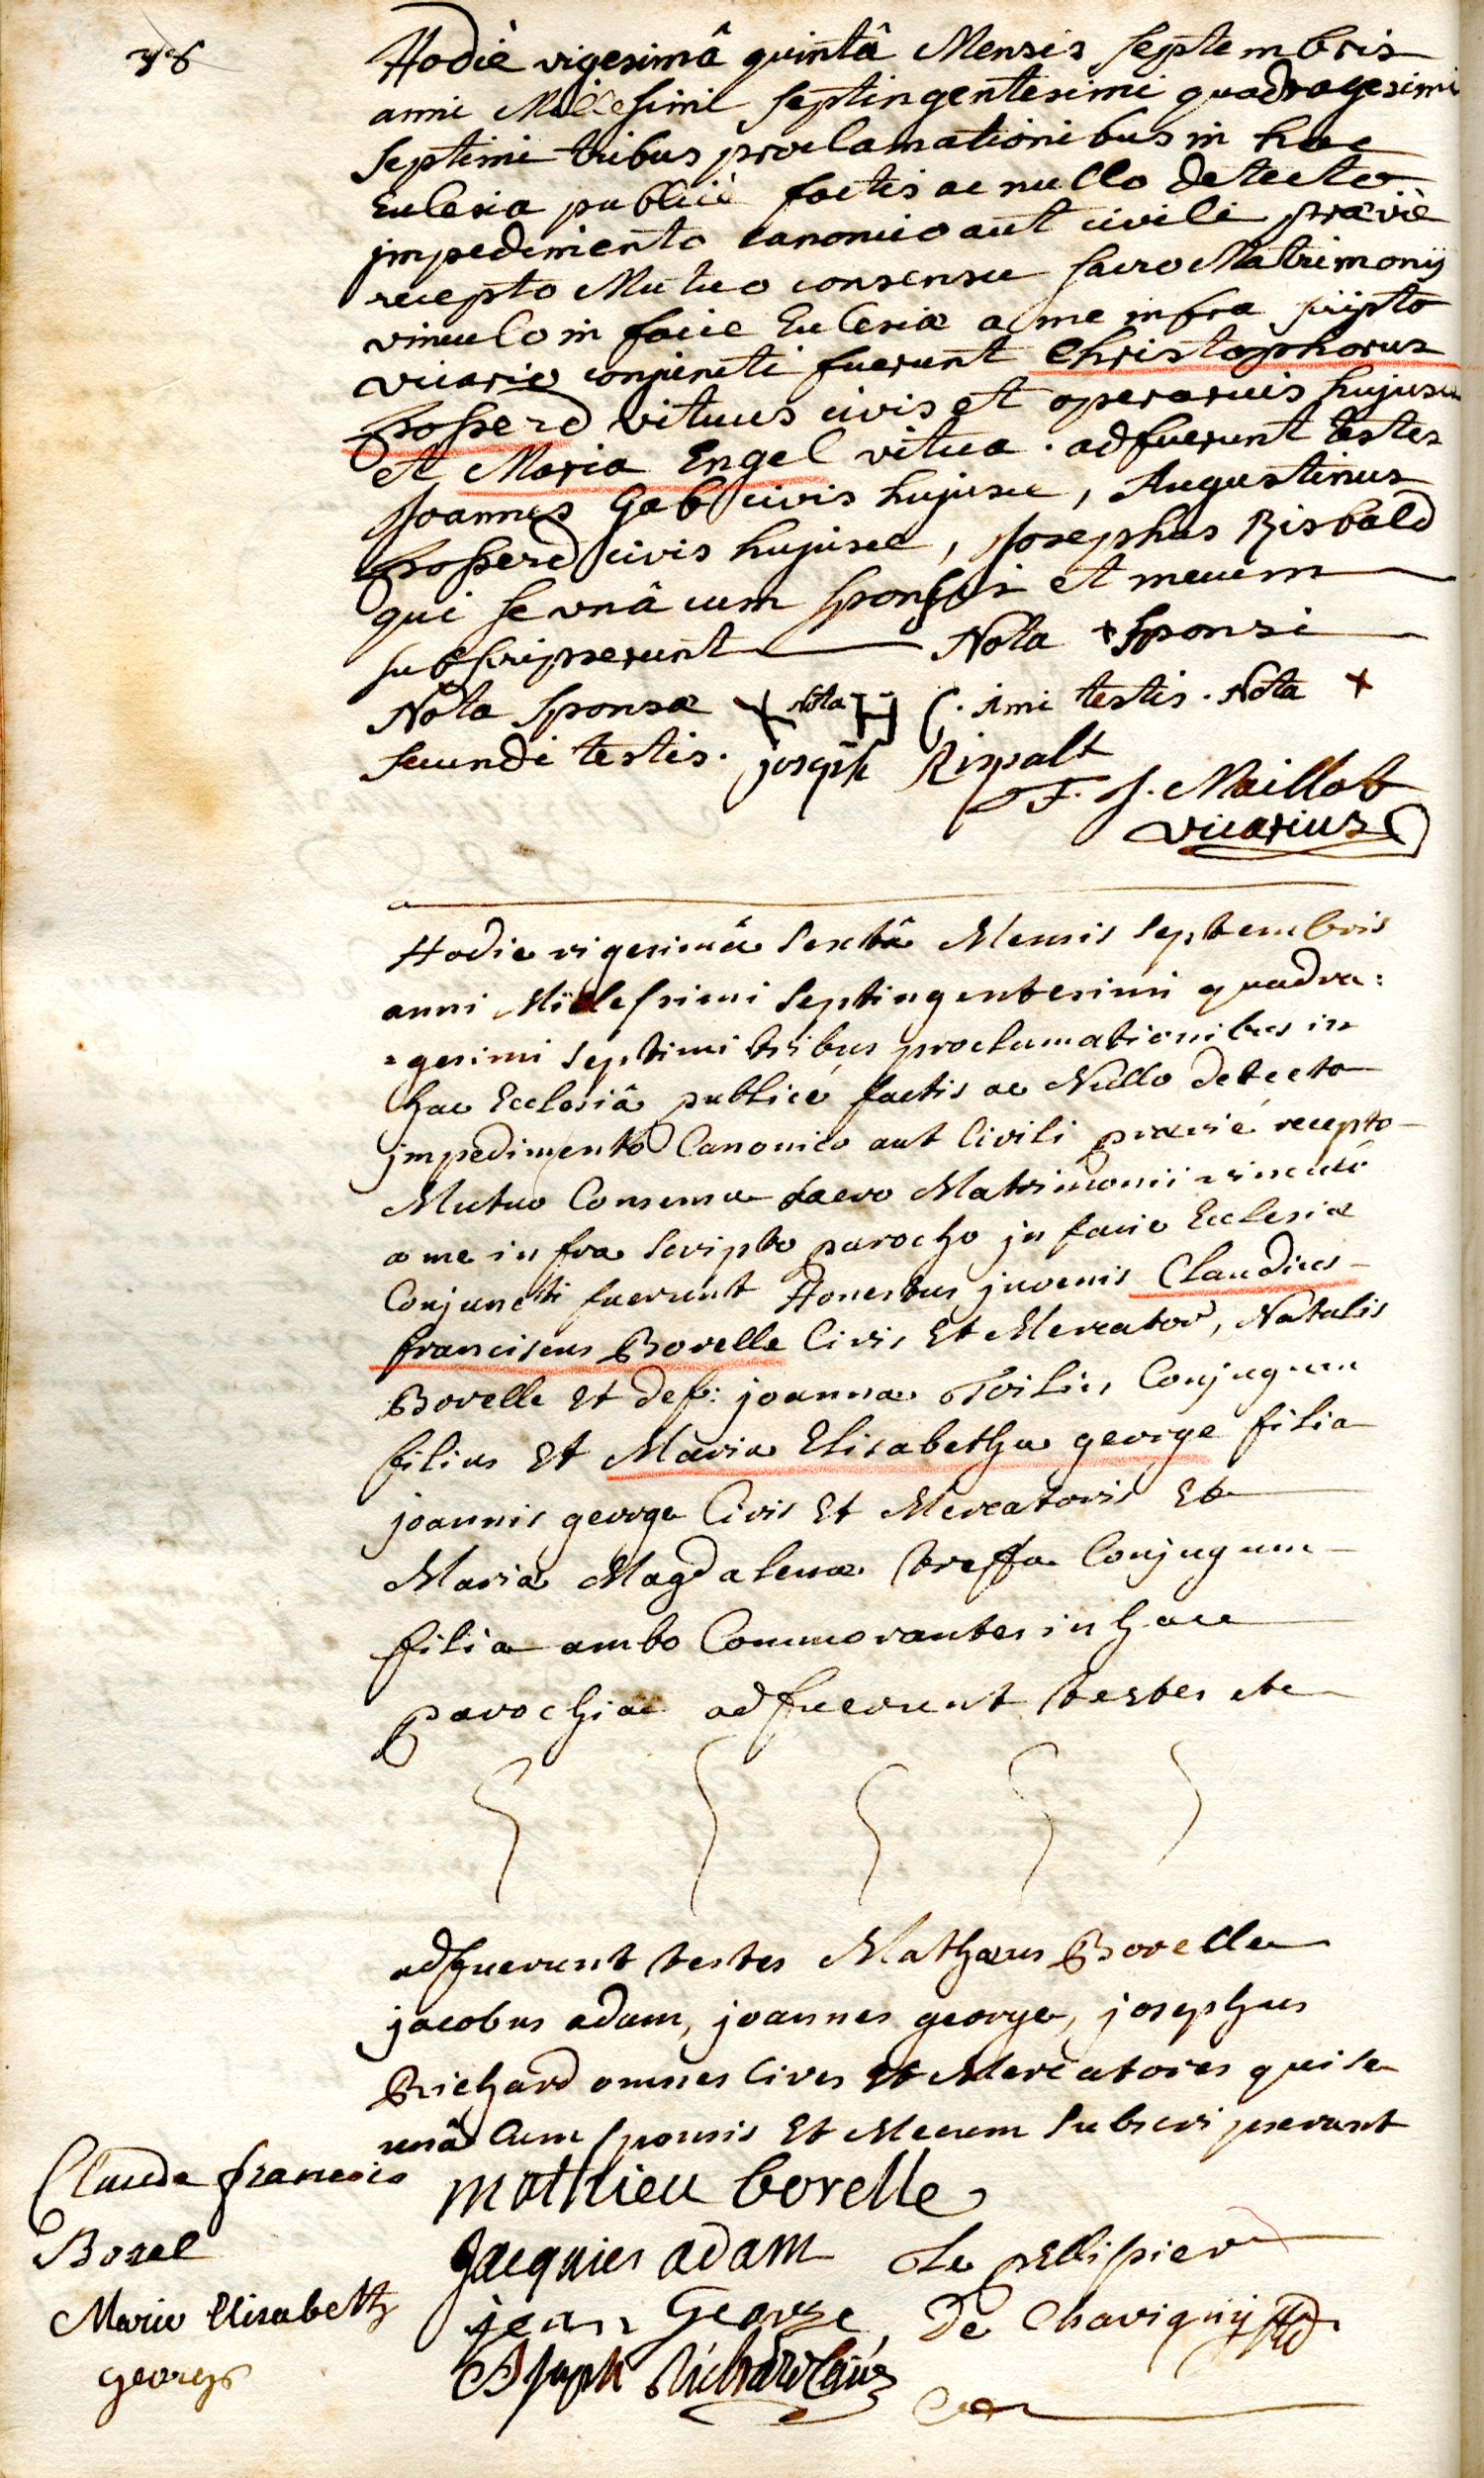 Hodiè vigesimâ quintâ Mensis Septembris
anni Millesimi septingentesimi quadragesimi
septimi tribus proclamationibus in hac
Ecclesia publicè factis ac nullo detecto
jmpedimento canonico aut civili præviè
recepto Mutuo consensu sacro Matrimonij
vinculo in facie Ecclesiæ a me infra scripto
vicario conjuncti fuerunt Christophorus
viduus civis et operarius hujusce
et Maria Engel vidua . adfuerunt testes
Joannes Gab civis hujusce, Augustinus
civis hujusce, Josephus Risbald
qui se vnâ cum sponsis et mecum
subscripserunt Nota + Sponsi
Nota Sponsæ + Nota H testis. Nota +
secundi testis. joseph Rispalt
F. J. Maillot
vicarius
Hodie vigesimâ sextâ Mensis Septembris
anni Millessimi Septingentesimi quadra:
=gesimi septimi tribus proclamationibus in
hac Ecclesiâ publicé factis ac Nullo detecto
jmpedimento Canonico aut Civili prævié recepto
Mutuo Consensu sacro Matrimonii vinculo
a me infra scripto parocho jn facie Ecclesiæ
Conjuncti fuerunt Honestus juvenis Claudius
franciscus Borelle Civis Et Mercator, Natalis
Borelle Et def: joannæ Conjugum
filius Et Maria Elisabetha george filia
joannis george Civis Et Mercatoris Et
Maria Magdalenæ treffa Conjugum
filia ambo Commorantes in hac
parochiæ adfuerunt testes etc
adfuerunt testes Mathæus Borelle
jacobus adam, joannes george, josephus
Richard omnes Cives Et Mercatores qui se
unâ Cum sponsis Et Mecum Subscripserunt
Claude francois
Borel
Marie Elisabeth
george
mathieu borelle
Jacquies adam Le pellissier
jean George, De Chavigny
Joseph Richard